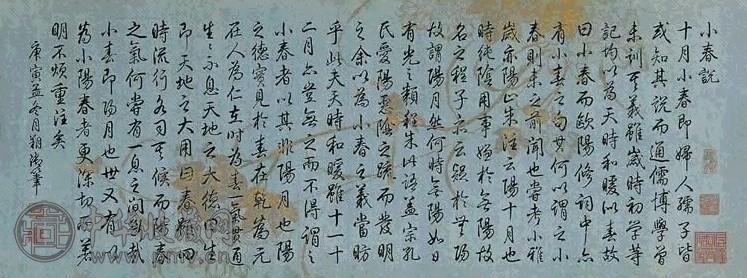 小春說
十月小春即婦人孺子皆
或知其說而通儒博學曾
未訓其義雖歲時初學等
記均以為天時和暖似春故
曰小春而歐陽修詞中亦
有小春之句其何以謂之小
春則未之前聞也嘗考小雅
歲亦陽止朱注云陽十月也
時純陰用事嫌於無陽故
名之程子亦云疑於無陽
故謂陽月然何時無陽如日
有光之類程朱此語蓋宗孔
氏愛陽惡陰之疏而發明
之余以為小春之義當昉
乎此夫天時和暖雖十一十
二月亦豈無之而不得謂之
小春者以其非陽月也陽
之德寔見於春在乾為元
在人為仁在時為春氣貫通
生生不息天地之大德曰生
即天地之大用曰春雖四
時流行各司其候而陽春
之氣何嘗有一息之間哉
小春即陽月也世又有以
為小陽春者更深切而著
明不煩重注矣
庚寅孟冬月朔御筆